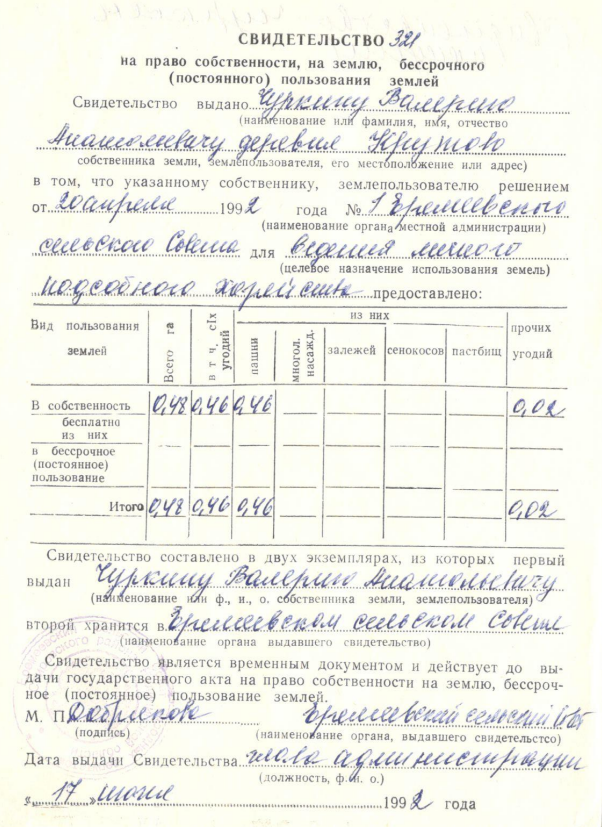 СВИДЕТЕЛЬСТВО 321
на право собственности, на землю, бессрочного
(постоянного) пользования землей
Свидетельство выдано Чуркину Валерию
(наименование или фамилия, имя, отчество
Анатольевичу деревня Крутово
собственника земли, землепользователя, его местоположение или адрес)
в том, что указанному собственнику, землепользователю решением
от 20 апреля 1992 года № 1 Еремеевского
(наименование органа местной администрации)
сельского Совета для ведения личного
(целевое назначение использования земель)
подсобного хозяйства предоставлено:
Вид пользования землей Всего га в т ч. сІх угодий из них прочих угодий
пашни многол. насажд. залежей сенокосов пастбищ
В собственность 0,48 0,46 0,46 0,02
бесплатно
из них
в бессрочное
(постоянное)
пользование
Итого 0,48 0,46 0,46 0,02
Свидетельство составлено в двух экземплярах, из которых первый
выдан Чуркину Валерию Анатольевичу
(наименование или ф., и., о. собственника земли, землепользователя)
второй хранится в Еремеевском сельском Совете
(наименование органа выдавшего свидетельство)
Свидетельство является временным документом и действует до вы-
дачи государственного акта на право собственности на землю, бессроч-
ное (постоянное) пользование землей.
М. П. Еремеевский сельский Совет
(подпись) (наименование органа, выдавшего свидетельстсо)
Дата выдачи Свидетельства глава администрации
(должность, ф. и. о.)
« 17 » июня 1992 года